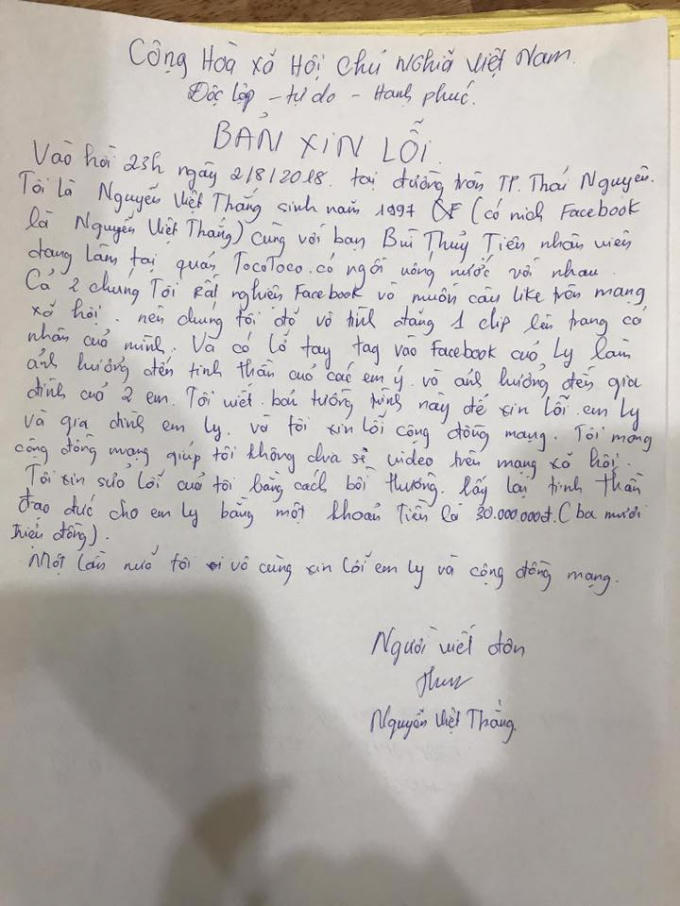 Cộng Hoà xã Hội chủ Nghĩa Việt Nam.
Độc lập - tự do - Hạnh phúc.
BẢN XIN LỖI
Vào hồi 23h ngày 2/8/2018. tại đường tròn TP. Thái Nguyên.
Tôi là Nguyễn Việt Thắng sinh năm 1997 (có nick Facebook
là Nguyễn Việt Thắng) cùng với bạn Bùi Thuỷ Tiên nhân viên
đang làm tại quán TocoToco. có ngồi uống nước với nhau.
Cả 2 chúng Tôi rất nghiện Facebook và muốn câu like trên mạng
xã hội. nên chúng tôi đã vô tình đăng 1 clip lên trang cá
nhân của mình. Và có lỡ tay tag vào Facebook của Ly làm
ảnh hưởng đến tinh thần của các em ý. và ảnh hưởng đến gia
đình của 2 em. Tôi viết bản tường trình này để xin lỗi em Ly
và gia đình em ly. và tôi xin lỗi cộng đồng mạng. Tôi mong
cộng đồng mạng giúp tôi không chia sẻ video trên mạng xã hội.
Tôi xin sửa lỗi của tôi bằng cách bồi thường. lấy lại tinh thần
đạo đức cho em ly bằng một khoản Tiền là 30.000.000đ. (ba mươi
triệu đồng).
Một lần nữa tôi vô cùng xin lỗi em ly và cộng đồng mạng.
Người viết đơn
Nguyễn Việt Thắng.